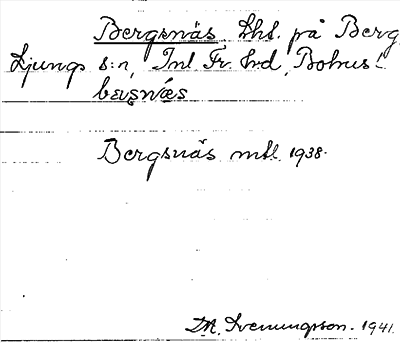 Bergsnäs Lhl. på Berg
Ljungs s:n, Inl. Fr. Hrd, Bohusl.
Bergsnäs mtl. 1938.
Sveningsson. 1941.